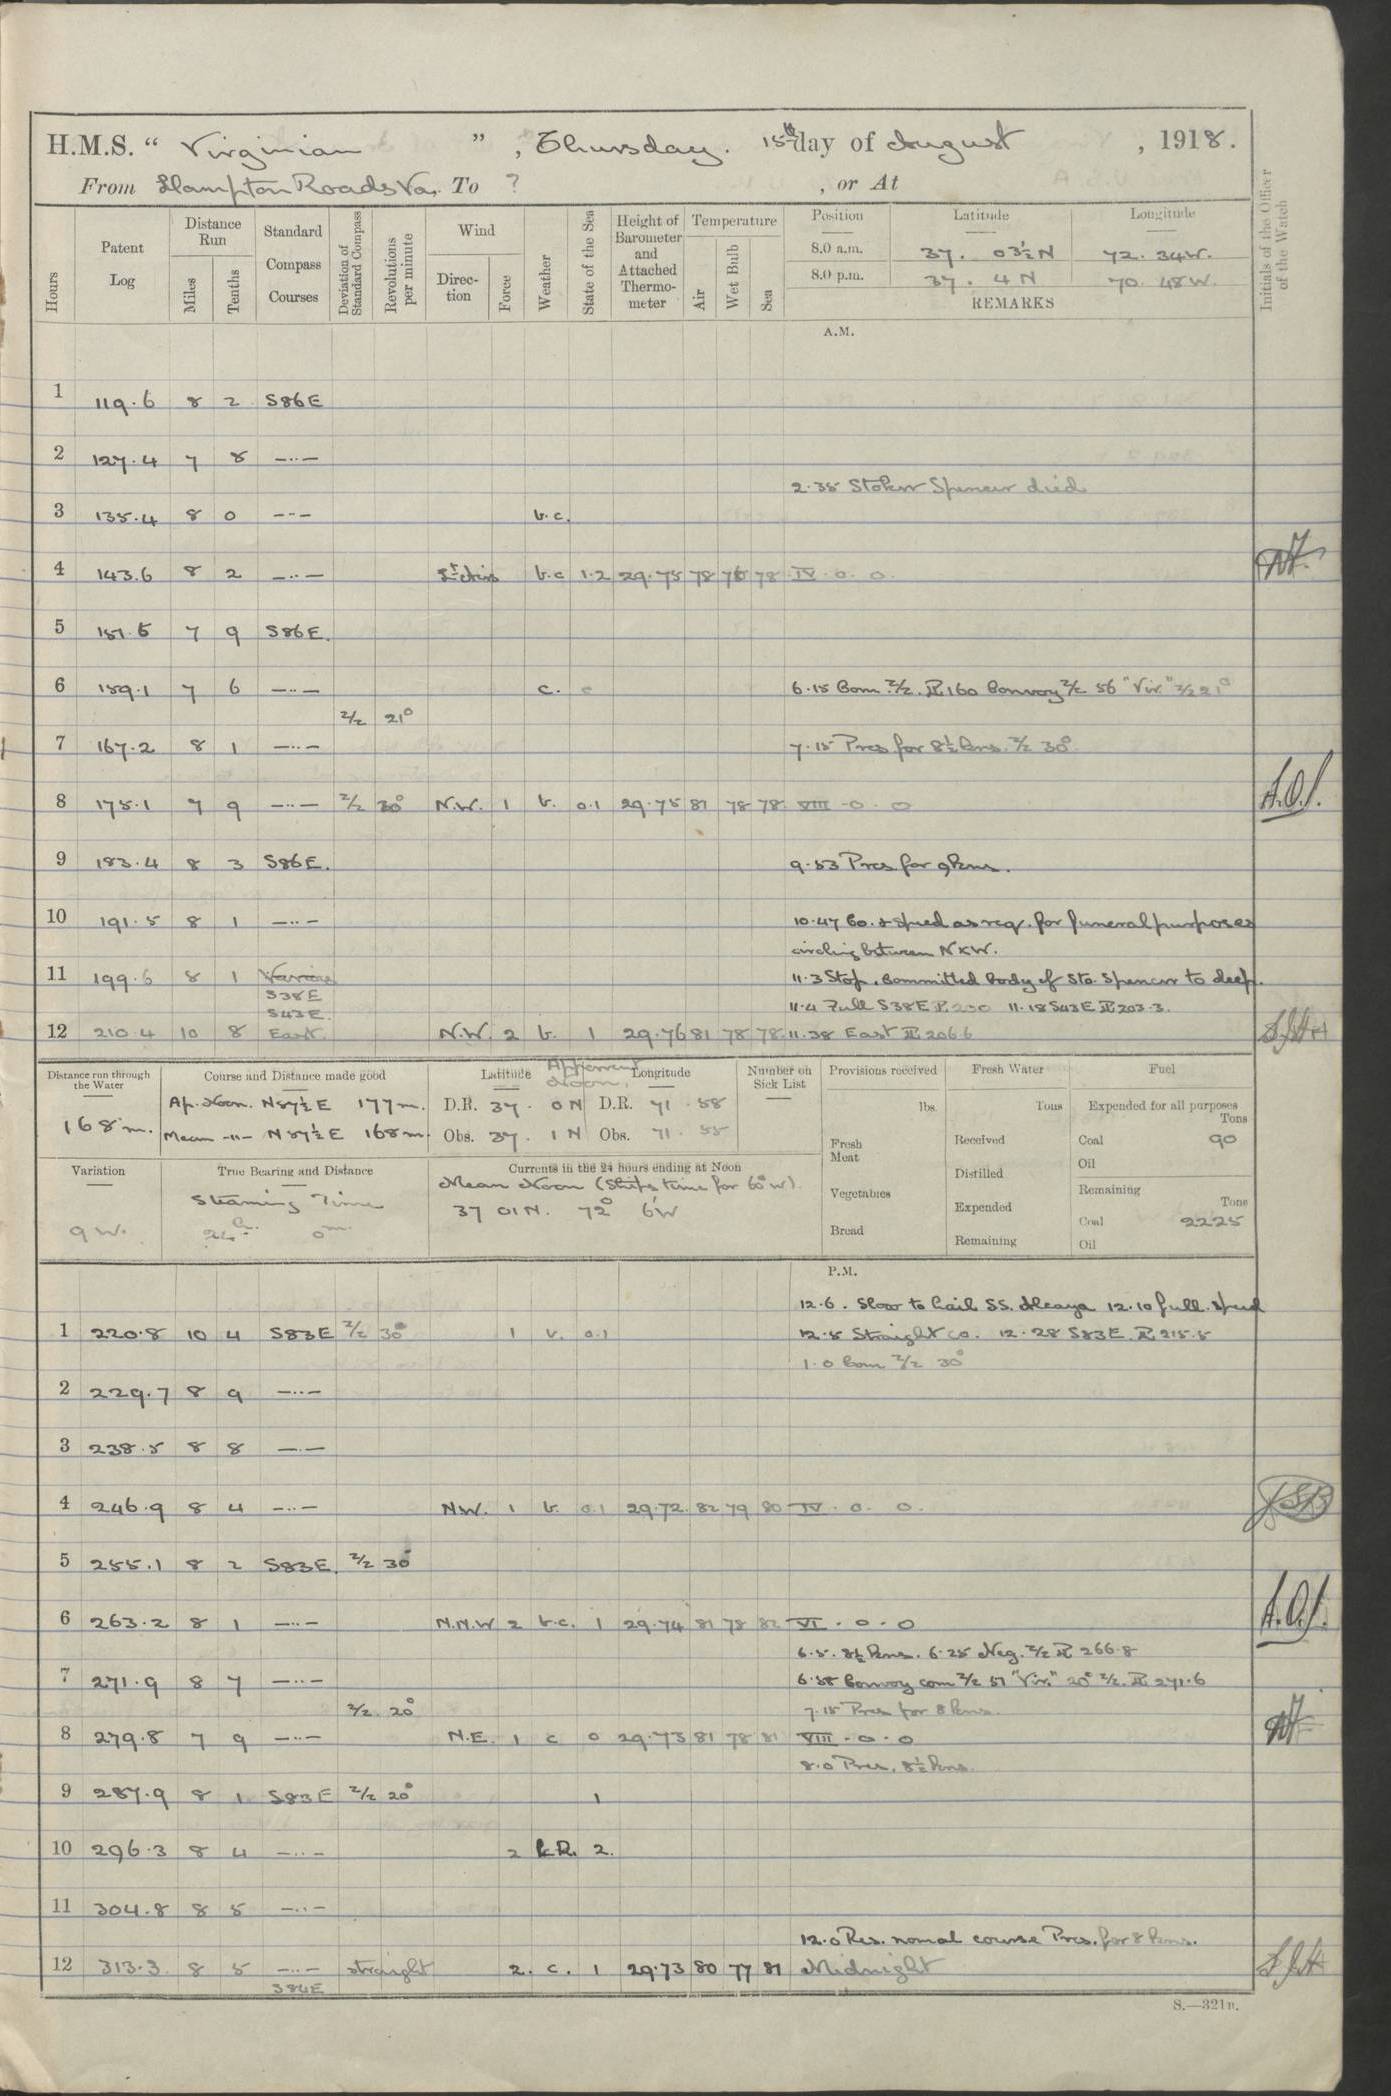 H.M.S. “ Virginian ” , Thursday. 15th day of August , 1918.
From Hampton Roads Va. To ? , or At
Hours
Patent Log
Distance Run
Miles
Tenths
Standard Compass Courses
Deviation of Standard Compass
Revolutions per minute
Wind
Direction
Force
Weather
State of the Sea
Height of Barometer and Attached Thermometer
Temperature
Air
Wet Bulb
Sea
Position Latitude Longitude
8.0 a.m. 37. 03½N 72. 34W.
8.0 p.m. 37. 4 N 70. 48W.
REMARKS
Initials of the Officer of the Watch
A.M.
1 119.6 8 2 S86E
2 127.4 7 8 —··—
2.35 Stoker Spencer died
3 135.4 8 0 —·— b.c.
4 143.6 8 2 —··— Lt Airs b.c 1.2 29.75 78 76 78 IV . 0. 0.
5 151.5 7 9 S86E.
6 159.1 7 6 —··— c. c 6.15 Com. Z/Z. PL 160 Convoy Z/Z 56 "Vir." Z/Z 21°
Z/Z 21°
7 167.2 8 1 —··— 7.15 Pres for 8½ kns. Z/Z 30°
8 175.1 7 9 —··— Z/Z 30° N.W. 1 b. 0.1 29.75 81 78 78. VIII . 0 . 0 A.O.S.
9 183.4 8 3 S86E. 9.53 Pres for 9 kns.
10 191.5 8 1 —··— 10.47 Co. & speed as req. for funeral purposes
circling between N & W.
11 199.6 8 1 Various 11.3 Stop. Committed body of Sto. Spencer to deep.
S38E
11.4 Full S38E PL 200 11.18 S43E PL 203.3.
S43E
12 210.4 10 8 East. N.W. 2 b. 1 29.76 81 78 78. 11.38 East PL 206.6
Distance run through the Water
168 m.
Course and Distance made good
Ap. Noon. N87½E 177 m.
Mean -"- N87½E 168 m.
Latitude Apparent Noon. Longitude
D.R. 37. 0 N D.R. 71 . 58
Obs. 37. 1 N Obs. 71 . 55
Number on Sick List
Provisions received
lbs.
Fresh Meat
Vegetables
Bread
Fresh Water
Tons
Received
Distilled
Expended
Remaining
Fuel
Expended for all purposes
Tons
Coal 90
Oil
Remaining
Tons
Coal 2225
Oil
Variation
9 W.
True Bearing and Distance
Steaming Time
24 h. 0 m.
Currents in the 24 hours ending at Noon
Mean Noon (Ships time for 60°W)
37 01 N. 72° 6'W
P.M.
12.6. Slow to hail SS. 12.10 full speed
1 220.8 10 4 S83E Z/Z 30° 1 b. 0.1 12.5 Straight co. 12.28 S83E. PL 215.5
1.0 Com Z/Z 30°
2 229.7 8 9 —··—
3 238.5 8 8 —··—
4 246.9 8 4 —··— N.W. 1 b. 0.1 29.72. 82 79 80 IV . 0. 0. JSB
5 255.1 8 2 S83E. Z/Z 30°
6 263.2 8 1 —··— N.N.W 2 b.c. 1 29.74 81 78 82 VI . 0 . 0 A.O.S.
6.5. 8½ kns. 6.25 Neg. Z/Z PL 266.8
7 271.9 8 7 —··— 6.58 Convoy com Z/Z 51 "Vir." 20° Z/Z. PL 271.6
Z/Z. 20° 7.15 Pres for 8 kns.
8 279.8 7 9 —··— N.E. 1 c 0 29.73 81 78 81 VIII . 0 . 0
8.0 Pres. 8½ kns.
9 287.9 8 1 S83E Z/Z 20° 1
10 296.3 8 4 —··— 2 2.
11 304.8 8 5 —··—
12.0 Res. nomal course Pres. for 8 kns.
12 313.3 8 5 —··— straight 2. c. 1 29.73 80 77 81 Midnight
S84E
S.—321B.